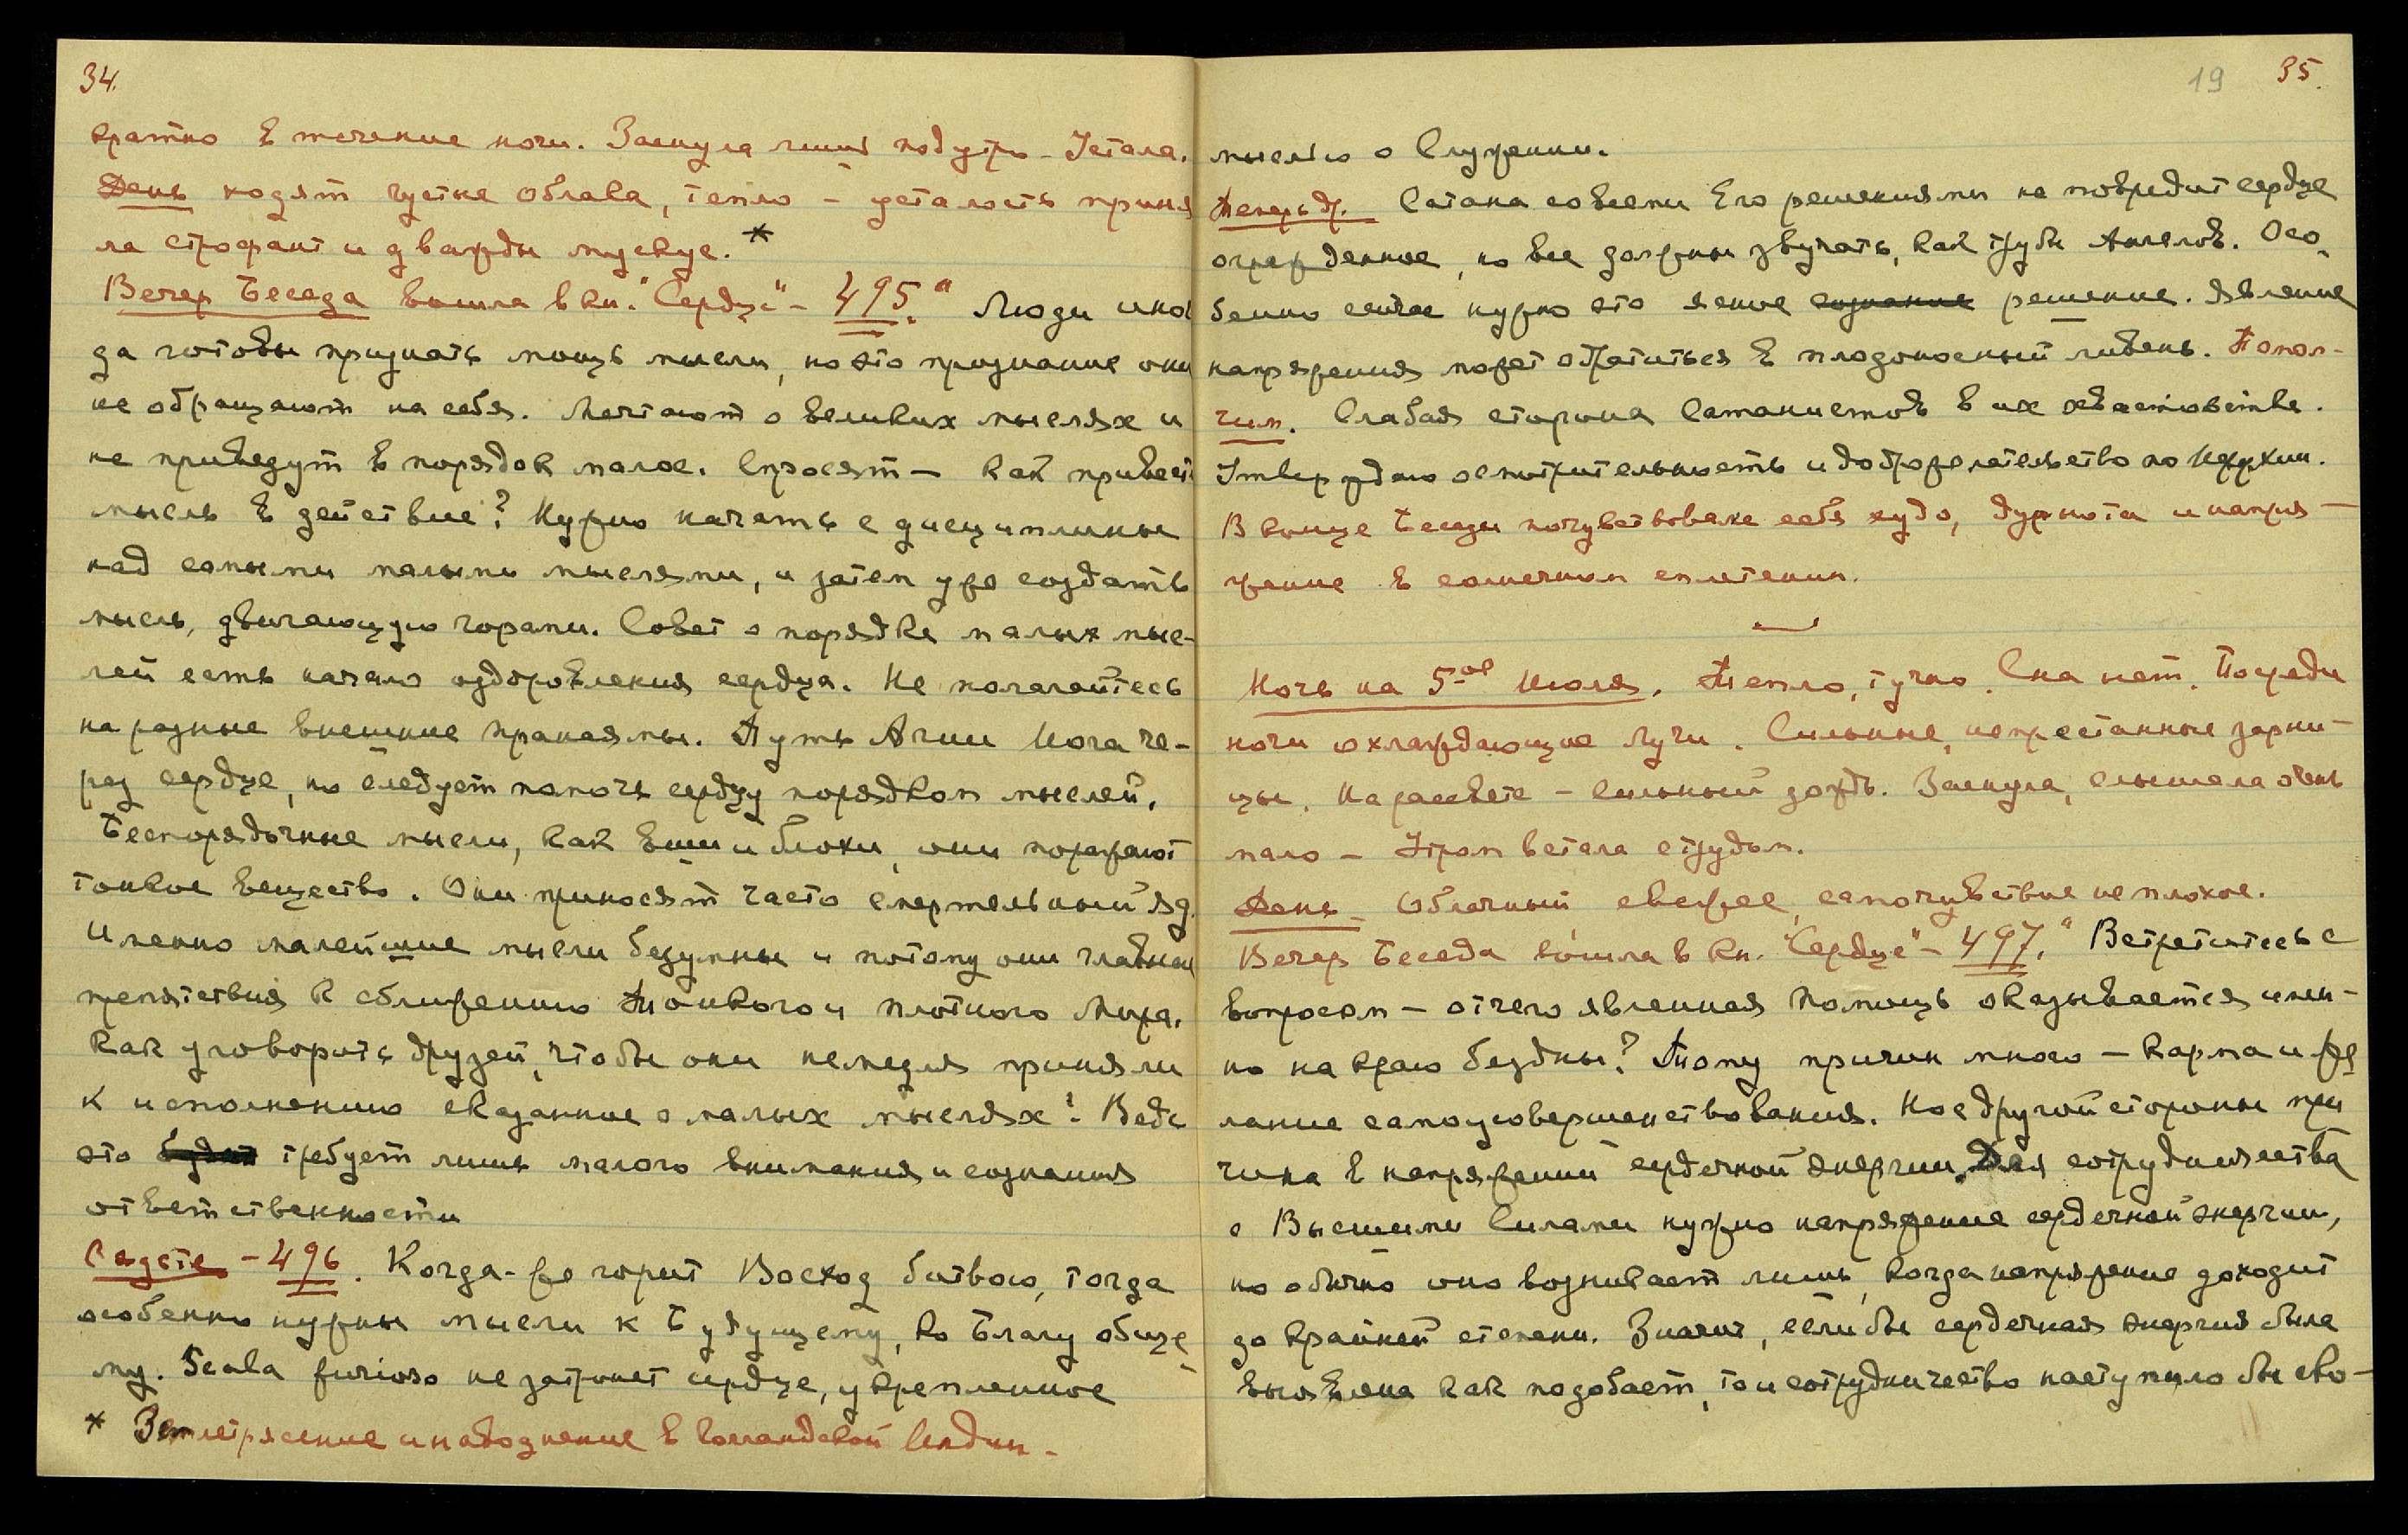 34.
кратно в течение ночи. Заснула лишь подутро – Устала.
День ходят густые облака, тепло – усталость приня
ла строфант и дважды мускус. *
Вечер Беседа вошла в кн. "Сердце" – 495. " Люди иног
да готовы признать мощь мысли, но это признание они
не обращают на себя. Мечтают о великих мыслях и
не приведут в порядок малое. Спросят – как привести
мысль в действие? Нужно начать с дисциплины
над самыми малыми мыслями, и затем уже создать
мысль, двигающую горами. Совет о порядке малых мыс-
лей есть начало оздоровления сердца. Не полагайтесь
на разные внешние пранаямы. Путь Агни Йога че-
рез сердце, но следует помочь сердцу порядком мыслей.
Беспорядочные мысли, как вши и блохи, они поражают
тонкое вещество. Они приносят часто смертельный яд.
Именно малейшие мысли безумны и потому они главная
препятствия к сближению Тонкого и плотного Мира.
Как уговорить друзей, чтобы они немедля приняли
к исполнению сказанное о малых мыслях? Ведь
это будет требует лишь малого внимания и сознания
ответственности
Садете – 496. Когда-же горит Восход битвою, тогда
особенно нужны мысли к Будущему, ко Благу обще
му. Scala furioso не затронет сердце, укрепленное
* Землетрясение и наводнение в Голландской Индии –
19 35.
мыслью о Служении.
Теперь др. Сатана со всеми Его решениями не повредит сердце
огражденное, но все должны звучать, как трубы Ангелов. Осо
бенно сейчас нужно это ясное сознание решение. Явление
напряжения может обратиться в плодоносный ливень. Попол-
чим. Слабая сторона Сатанистов в их хвастовстве.
Утверждаю осмотрительность и доброжелательство по нужнии.
В конце Беседы почувствовала себя худо, дурнота и напря –
жение в солнечном сплетении.
Ночь на 5-ое Июля. Тепло, тучно. Сна нет. Посреди
ночи охлаждающие лучи. Сильные, непрестанные зарни –
цы. На рассвете – сильный дождь. Заснула, слышала очень
мало – Утром встала с трудом.
День – Облачный, свежее, самочувствие не плохое.
Вечер Беседа вошла в кн. "Сердце" – 497. " Встретитесь с
вопросом – отчего явленная помощь оказывается имен –
но на краю бездны? Тому причин много – карма и же
лание самоусовершенствования. Но с другой стороны при
чина в напряжении сердечной энергии. Для сотрудничества
с Высшими Силами нужно напряжение сердечной энергии,
но обычно оно возникает лишь, когда напряжение доходит
до крайней степени. Значит, если бы сердечная энергия была
выявлена как подобает, то и сотрудничество наступило бы ско –